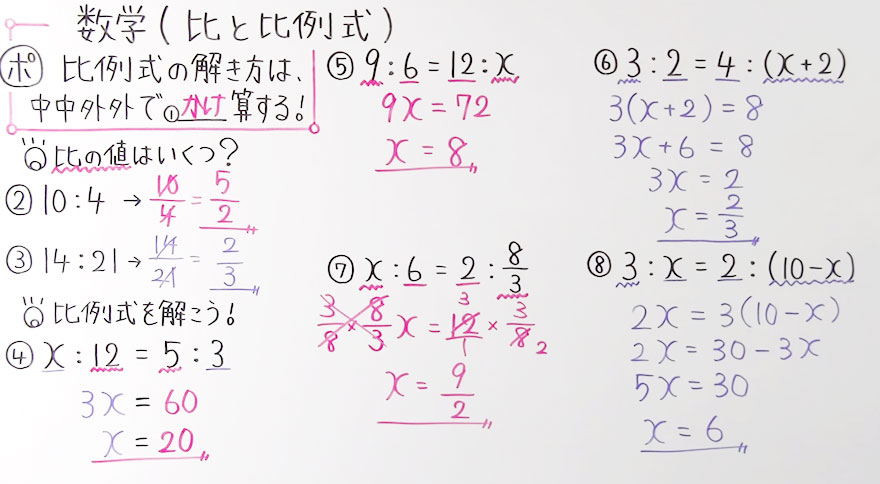 数学(比と比例式)
ポ 比例式の解き方は、
中中外外で①かけ算する!
比の値はいくつ?
② 10:4 → 10/4 = 5/2
③ 14:21 → 14/21 = 2/3
比例式を解こう!
④ x:12 = 5:3
3x = 60
x = 20
⑤ 9:6 = 12:x
9x = 72
x = 8
⑦ x:6 = 2:8/3
3/8 × 8/3 x = 12 × 3/8
3
1
2
x = 9/2
⑥ 3:2 = 4:(x+2)
3(x+2) = 8
3x+6 = 8
3x = 2
x = 2/3
⑧ 3:x = 2:(10-x)
2x = 3(10-x)
2x = 30-3x
5x = 30
x = 6